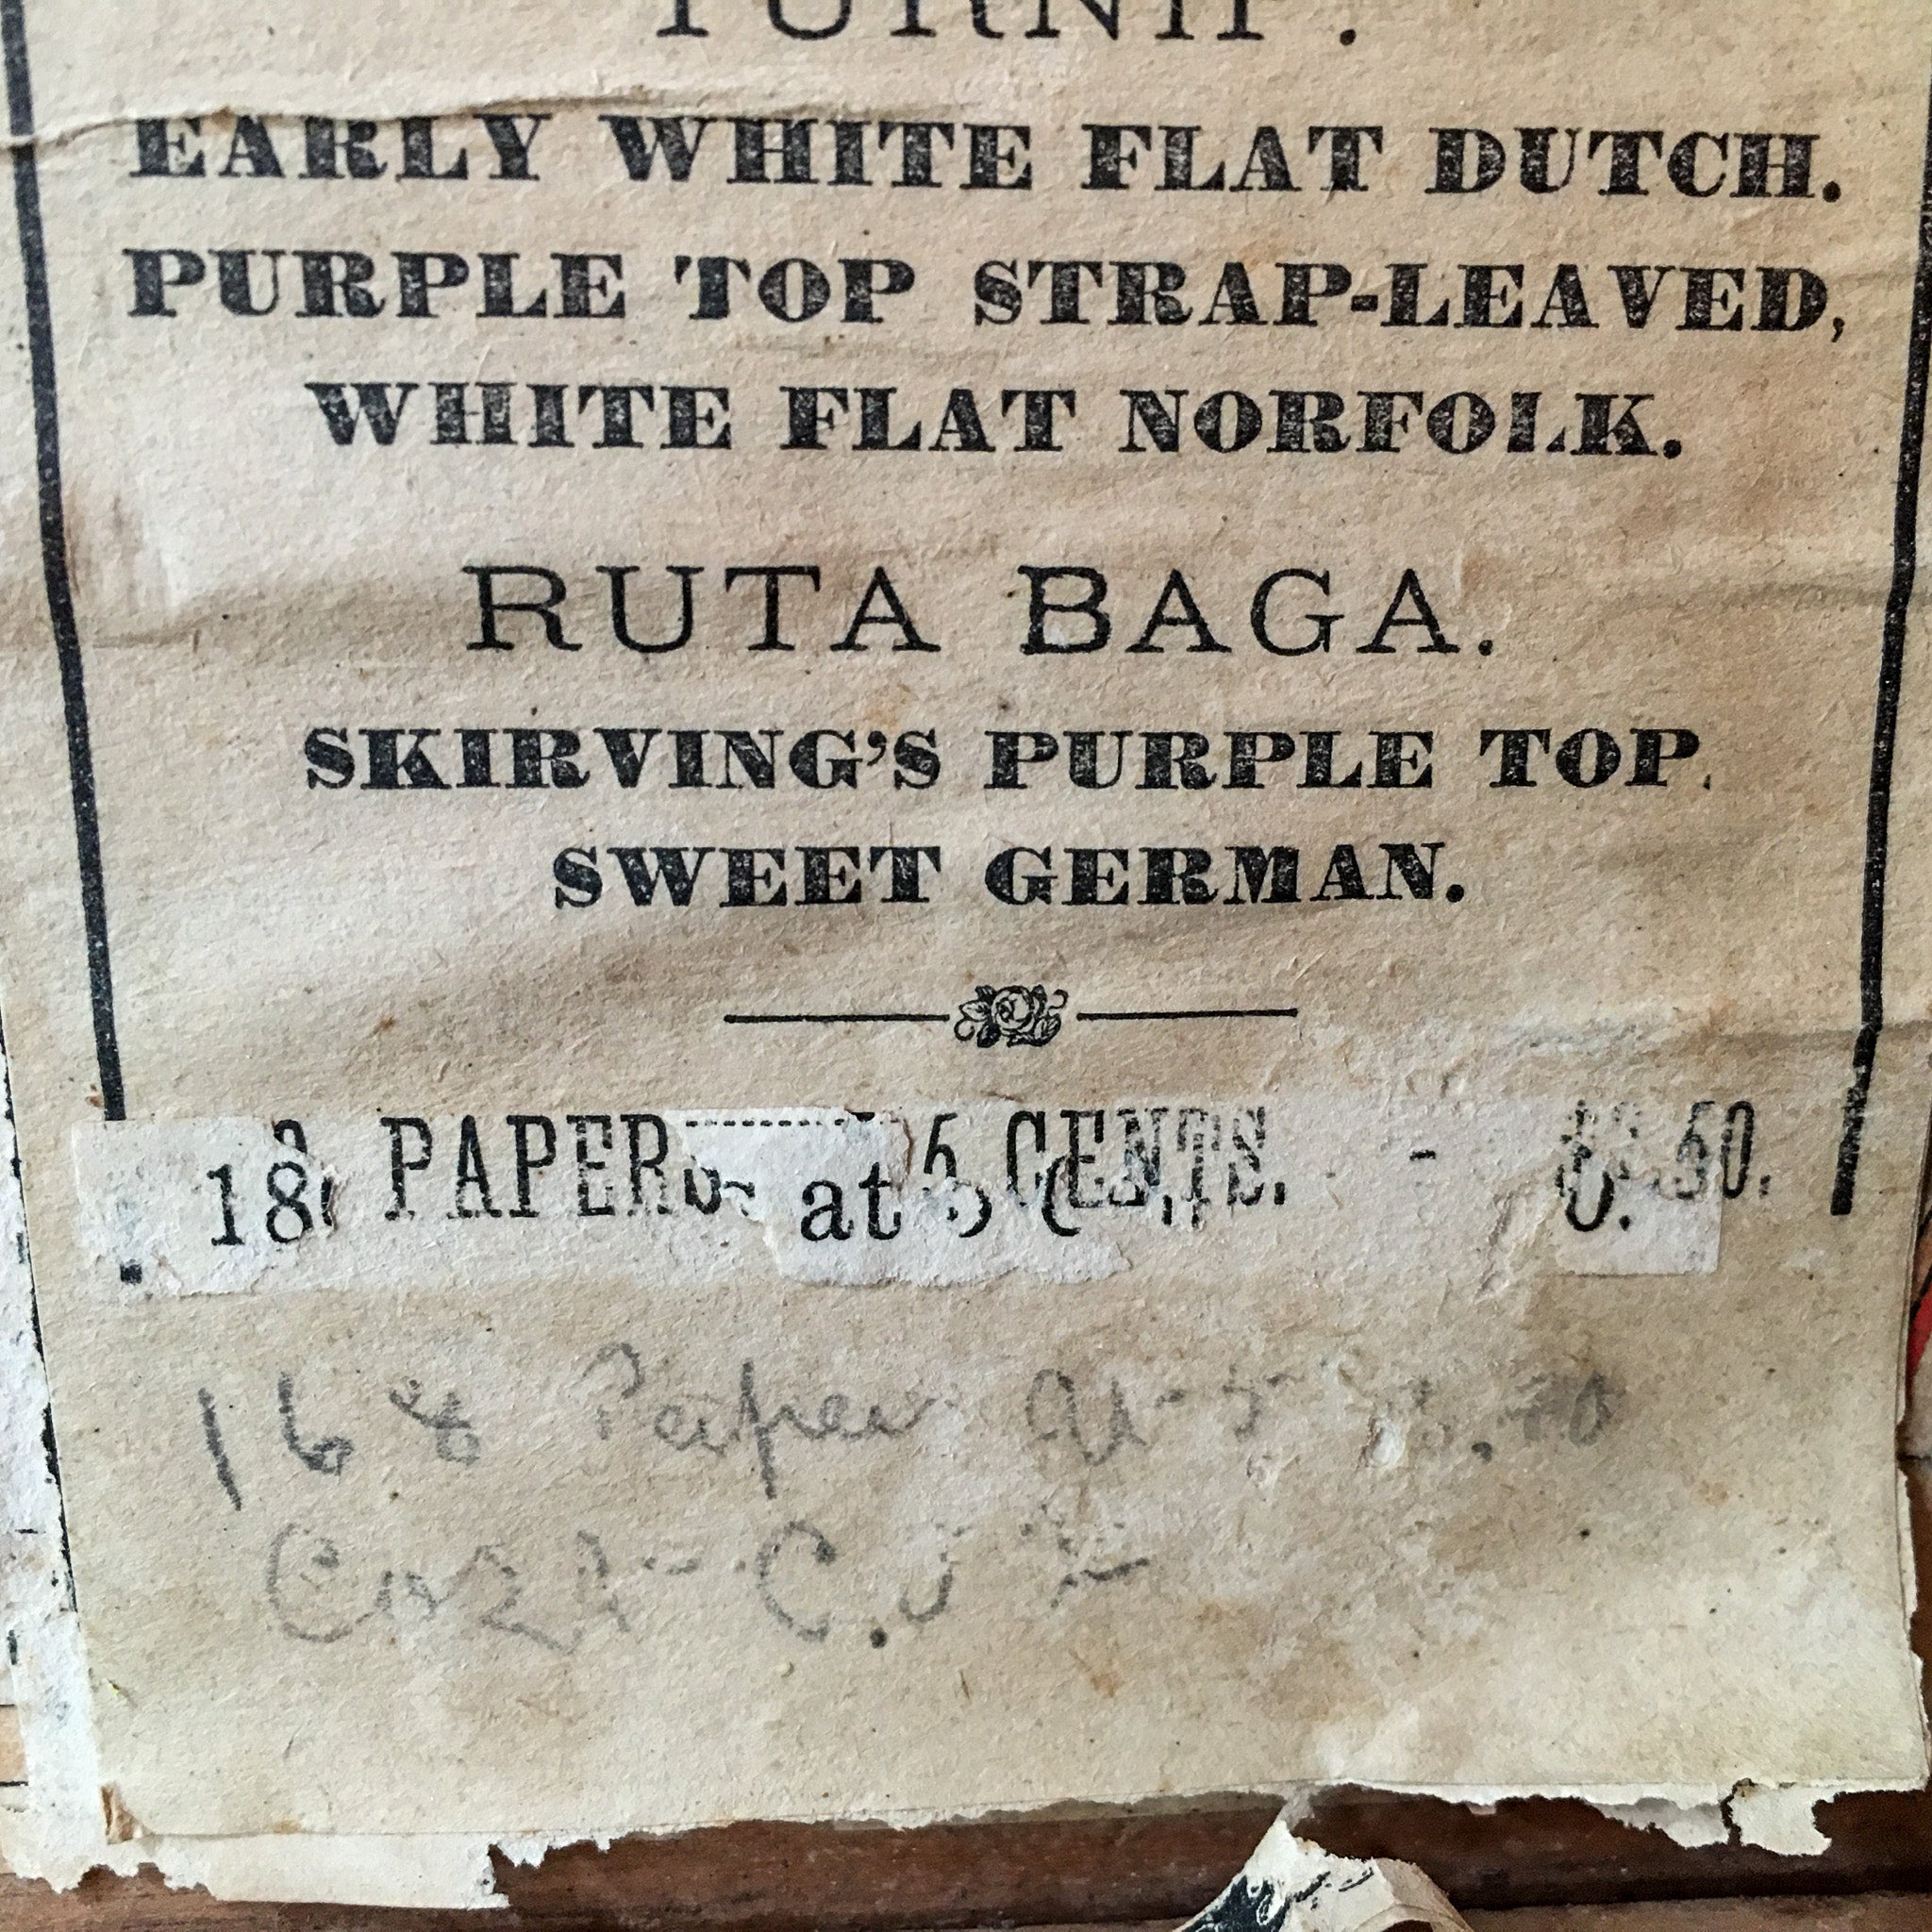 TURNIP.
EARLY WHITE FLAT DUTCH.
PURPLE TOP STRAP-LEAVED,
WHITE FLAT NORFOLK.
RUTA BAGA.
SKIRVING'S PURPLE TOP.
SWEET GERMAN.
PAPERS at 5 CENTS. -